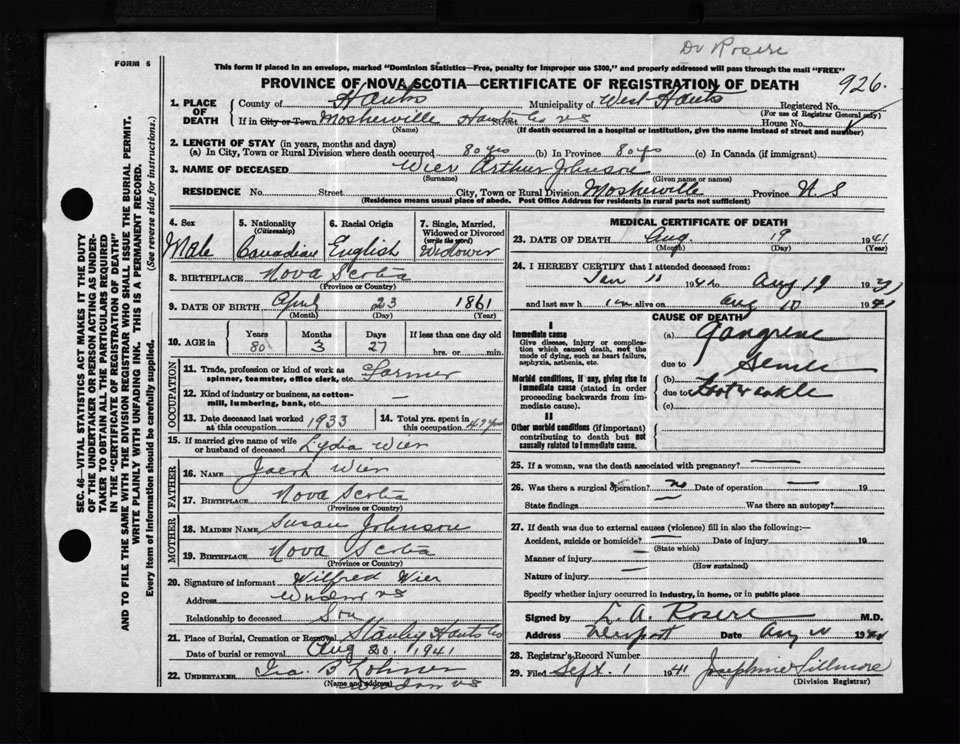 Dr Rosere
FORM 6
This form if placed in an envelope, marked "Dominion Statistics—Free, penalty for improper use $300," and properly addressed will pass through the mail "FREE"
PROVINCE OF NOVA SCOTIA—CERTIFICATE OF REGISTRATION OF DEATH
926.
1. PLACE OF DEATH
County of Hants Municipality of West Hants Registered No.
(For use of Registrar General only)
If in City or Town Mosherville Hants Co NS Street House No.
(Name) (If death occurred in a hospital or institution, give the name instead of street and number)
2. LENGTH OF STAY (in years, months and days)
(a) In City, Town or Rural Division where death occurred 80 yrs (b) In Province 80 yrs (c) In Canada (if immigrant)
3. NAME OF DECEASED Wier Arthur Johnson
(Surname) (Given name or names)
RESIDENCE No. Street City, Town or Rural Division Mosherville Province N S
(Residence means usual place of abode. Post Office Address for residents in rural parts not sufficient)
4. Sex Male
5. Nationality (Citizenship) Canadian
6. Racial Origin English
7. Single, Married, Widowed or Divorced (write the word) Widower
8. BIRTHPLACE Nova Scotia
(Province or Country)
9. DATE OF BIRTH April 23 1861
(Month) (Day) (Year)
10. AGE in Years 80 Months 3 Days 27 If less than one day old hrs. or min.
OCCUPATION
11. Trade, profession or kind of work as spinner, teamster, office clerk, etc. Farmer
12. Kind of industry or business, as cotton-mill, lumbering, bank, etc. —
13. Date deceased last worked at this occupation 1933
14. Total yrs. spent in this occupation
15. If married give name of wife or husband of deceased Lydia Wier
FATHER
16. NAME Jacob Wier
17. BIRTHPLACE Nova Scotia
(Province or Country)
MOTHER
18. MAIDEN NAME Susan Johnson
19. BIRTHPLACE Nova Scotia
(Province or Country)
20. Signature of informant Wilfred Wier
Address Windsor NS
Relationship to deceased Son
21. Place of Burial, Cremation or Removal Stanley Hants Co
Date of burial or removal Aug 20. 1941
22. UNDERTAKER Ira B
(Name and address) NS
MEDICAL CERTIFICATE OF DEATH
23. DATE OF DEATH Aug. 19 1941
(Month) (Day)
24. I HEREBY CERTIFY that I attended deceased from:
Jan 11 194 to Aug 19 19
and last saw h im alive on Aug 10 1941
CAUSE OF DEATH
I
Immediate cause
Give disease, injury or complication which caused death, not the mode of dying, such as heart failure, asphyxia, asthenia, etc.
(a) Gangrene
due to Senile
Morbid conditions, if any, giving rise to immediate cause (stated in order proceeding backwards from immediate cause).
(b)
due to Foot & ankle
(c)
II
Other morbid conditions (if important) contributing to death but not causally related to immediate cause.
25. If a woman, was the death associated with pregnancy? —
26. Was there a surgical operation? no Date of operation — 19
State findings — Was there an autopsy?
27. If death was due to external causes (violence) fill in also the following:—
Accident, suicide or homicide? — Date of injury 19
(State which)
Manner of injury —
(How sustained)
Nature of injury —
Specify whether injury occurred in industry, in home, or in public place
Signed by L. A. Rosere M.D.
Address Newport Date Aug 19
28. Registrar's Record Number
29. Filed Sept. 1 1941 Josephine Fillmore
(Division Registrar)
SEC. 46—VITAL STATISTICS ACT MAKES IT THE DUTY OF THE UNDERTAKER OR PERSON ACTING AS UNDERTAKER TO OBTAIN ALL THE PARTICULARS REQUIRED IN THE "CERTIFICATE OF REGISTRATION OF DEATH" AND TO FILE THE SAME WITH THE DIVISION REGISTRAR WHO SHALL ISSUE THE BURIAL PERMIT.
WRITE PLAINLY WITH UNFADING INK. THIS IS A PERMANENT RECORD.
Every item of information should be carefully supplied. (See reverse side for instructions.)